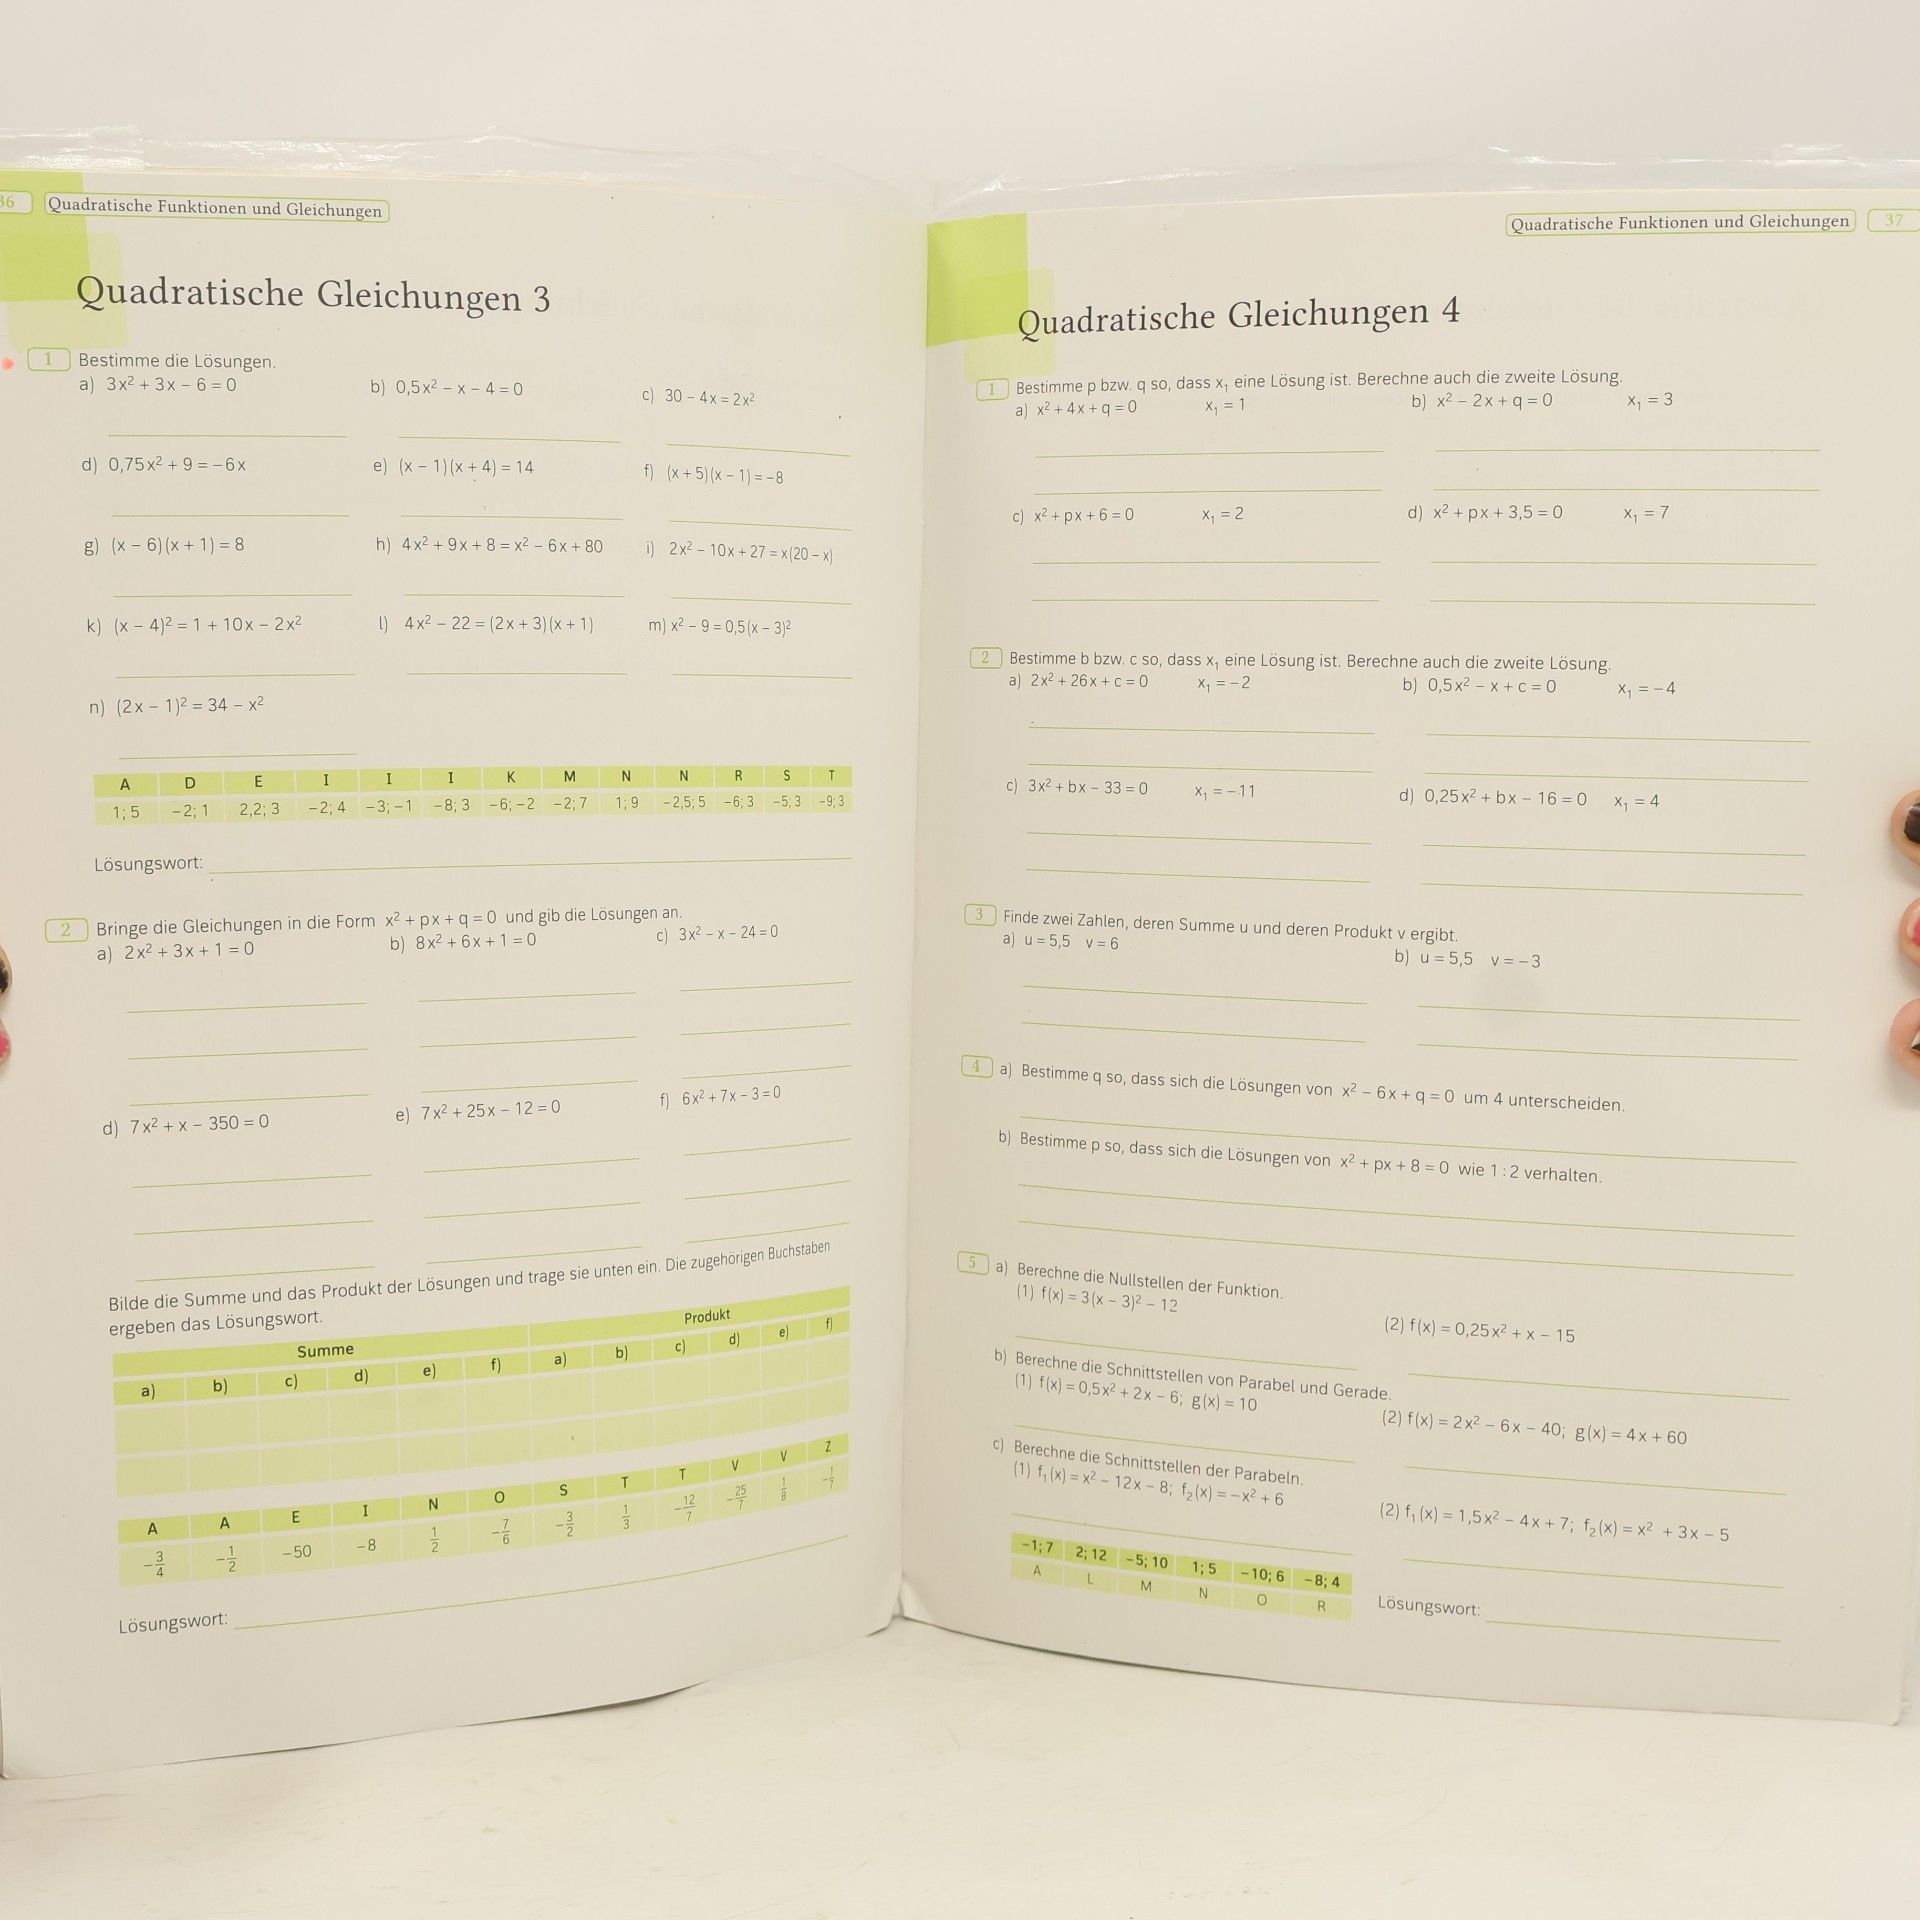 36 Quadratische Funktionen und Gleichungen
Quadratische Gleichungen 3
1 Bestimme die Lösungen.
a) 3x² + 3x – 6 = 0 b) 0,5x² – x – 4 = 0 c) 30 – 4x = 2x²
d) 0,75x² + 9 = –6x e) (x – 1)(x + 4) = 14 f) (x + 5)(x – 1) = –8
g) (x – 6)(x + 1) = 8 h) 4x² + 9x + 8 = x² – 6x + 80 i) 2x² – 10x + 27 = x(20 – x)
k) (x – 4)² = 1 + 10x – 2x² l) 4x² – 22 = (2x + 3)(x + 1) m) x² – 9 = 0,5(x – 3)²
n) (2x – 1)² = 34 – x²
A D E I I I K M N N R S T
1; 5 –2; 1 2,2; 3 –2; 4 –3; –1 –8; 3 –6; –2 –2; 7 1; 9 –2,5; 5 –6; 3 –5; 3 –9; 3
Lösungswort:
2 Bringe die Gleichungen in die Form x² + px + q = 0 und gib die Lösungen an.
a) 2x² + 3x + 1 = 0 b) 8x² + 6x + 1 = 0 c) 3x² – x – 24 = 0
d) 7x² + x – 350 = 0 e) 7x² + 25x – 12 = 0 f) 6x² + 7x – 3 = 0
Bilde die Summe und das Produkt der Lösungen und trage sie unten ein. Die zugehörigen Buchstaben
ergeben das Lösungswort.
Summe Produkt
a) b) c) d) e) f) a) b) c) d) e) f)
A A E I N O S T T V V Z
–3/4 –1/2 –50 –8 1/2 –7/6 –3/2 1/3 –12/7 –25/7 1/8 –1/7
Lösungswort:
Quadratische Funktionen und Gleichungen 37
Quadratische Gleichungen 4
1 Bestimme p bzw. q so, dass x₁ eine Lösung ist. Berechne auch die zweite Lösung.
a) x² + 4x + q = 0 x₁ = 1 b) x² – 2x + q = 0 x₁ = 3
c) x² + px + 6 = 0 x₁ = 2 d) x² + px + 3,5 = 0 x₁ = 7
2 Bestimme b bzw. c so, dass x₁ eine Lösung ist. Berechne auch die zweite Lösung.
a) 2x² + 26x + c = 0 x₁ = –2 b) 0,5x² – x + c = 0 x₁ = –4
c) 3x² + bx – 33 = 0 x₁ = –11 d) 0,25x² + bx – 16 = 0 x₁ = 4
3 Finde zwei Zahlen, deren Summe u und deren Produkt v ergibt.
a) u = 5,5 v = 6 b) u = 5,5 v = –3
4 a) Bestimme q so, dass sich die Lösungen von x² – 6x + q = 0 um 4 unterscheiden.
b) Bestimme p so, dass sich die Lösungen von x² + px + 8 = 0 wie 1 : 2 verhalten.
5 a) Berechne die Nullstellen der Funktion.
(1) f(x) = 3(x – 3)² – 12 (2) f(x) = 0,25x² + x – 15
b) Berechne die Schnittstellen von Parabel und Gerade.
(1) f(x) = 0,5x² + 2x – 6; g(x) = 10 (2) f(x) = 2x² – 6x – 40; g(x) = 4x + 60
c) Berechne die Schnittstellen der Parabeln.
(1) f₁(x) = x² – 12x – 8; f₂(x) = –x² + 6 (2) f₁(x) = 1,5x² – 4x + 7; f₂(x) = x² + 3x – 5
–1; 7 2; 12 –5; 10 1; 5 –10; 6 –8; 4
A L M N O R
Lösungswort: